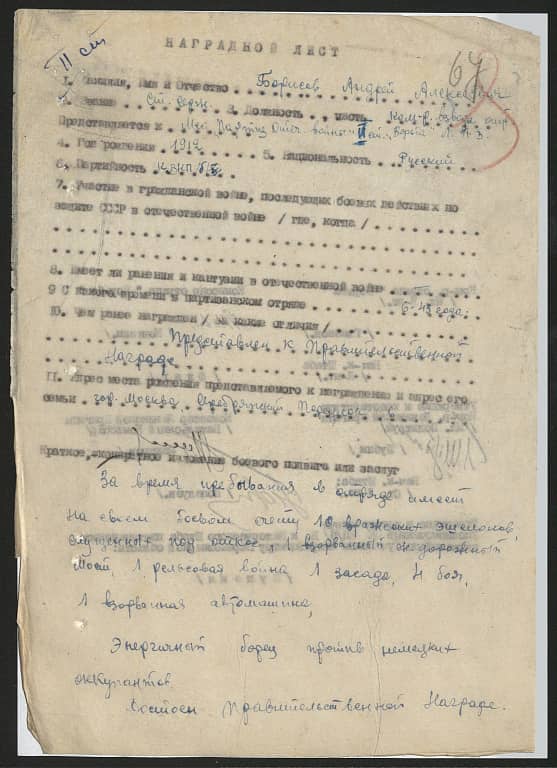 II ст
67
НАГРАДНОЙ ЛИСТ
1. Фамилия, Имя и Отчество . . Борисов Андрей
2. Звание . . Ст. серж. 3. Должность . , часть
Представляется к Мед. Партиз. Отеч. войны II ст.
4. Год рождения 1919 5. Национальность . Русский
6. Партийность КВКП/б/
7. Участие в гражданской войне, последующих боевых действиях по
защите СССР в отечественной войне / где, когда /
8. Имеет ли ранения и контузии в отечественной войне
9 С какого времени в партизанском отряде . . . 6-43 года.
10. Чем ранее награжден / за какие отличия /
Предоставлен к Правительственной
Награде
11. Адрес места рождения представляемого к награждению и адрес его
семьи . гор. Москва Серебряный
Краткое, конкретное изложение боевого подвига или заслуг
За время пребывания в отряде имеет
на своем боевом счету 10 вражеских эшелонов,
спущенных под откос, 1 взорванный ж-дорожный
мост, 1 рельсовая война 1 засада, 4 боя,
1 взорванная автомашина,
Энергичный борец против немецких
оккупантов
Достоен Правительственной Награде.